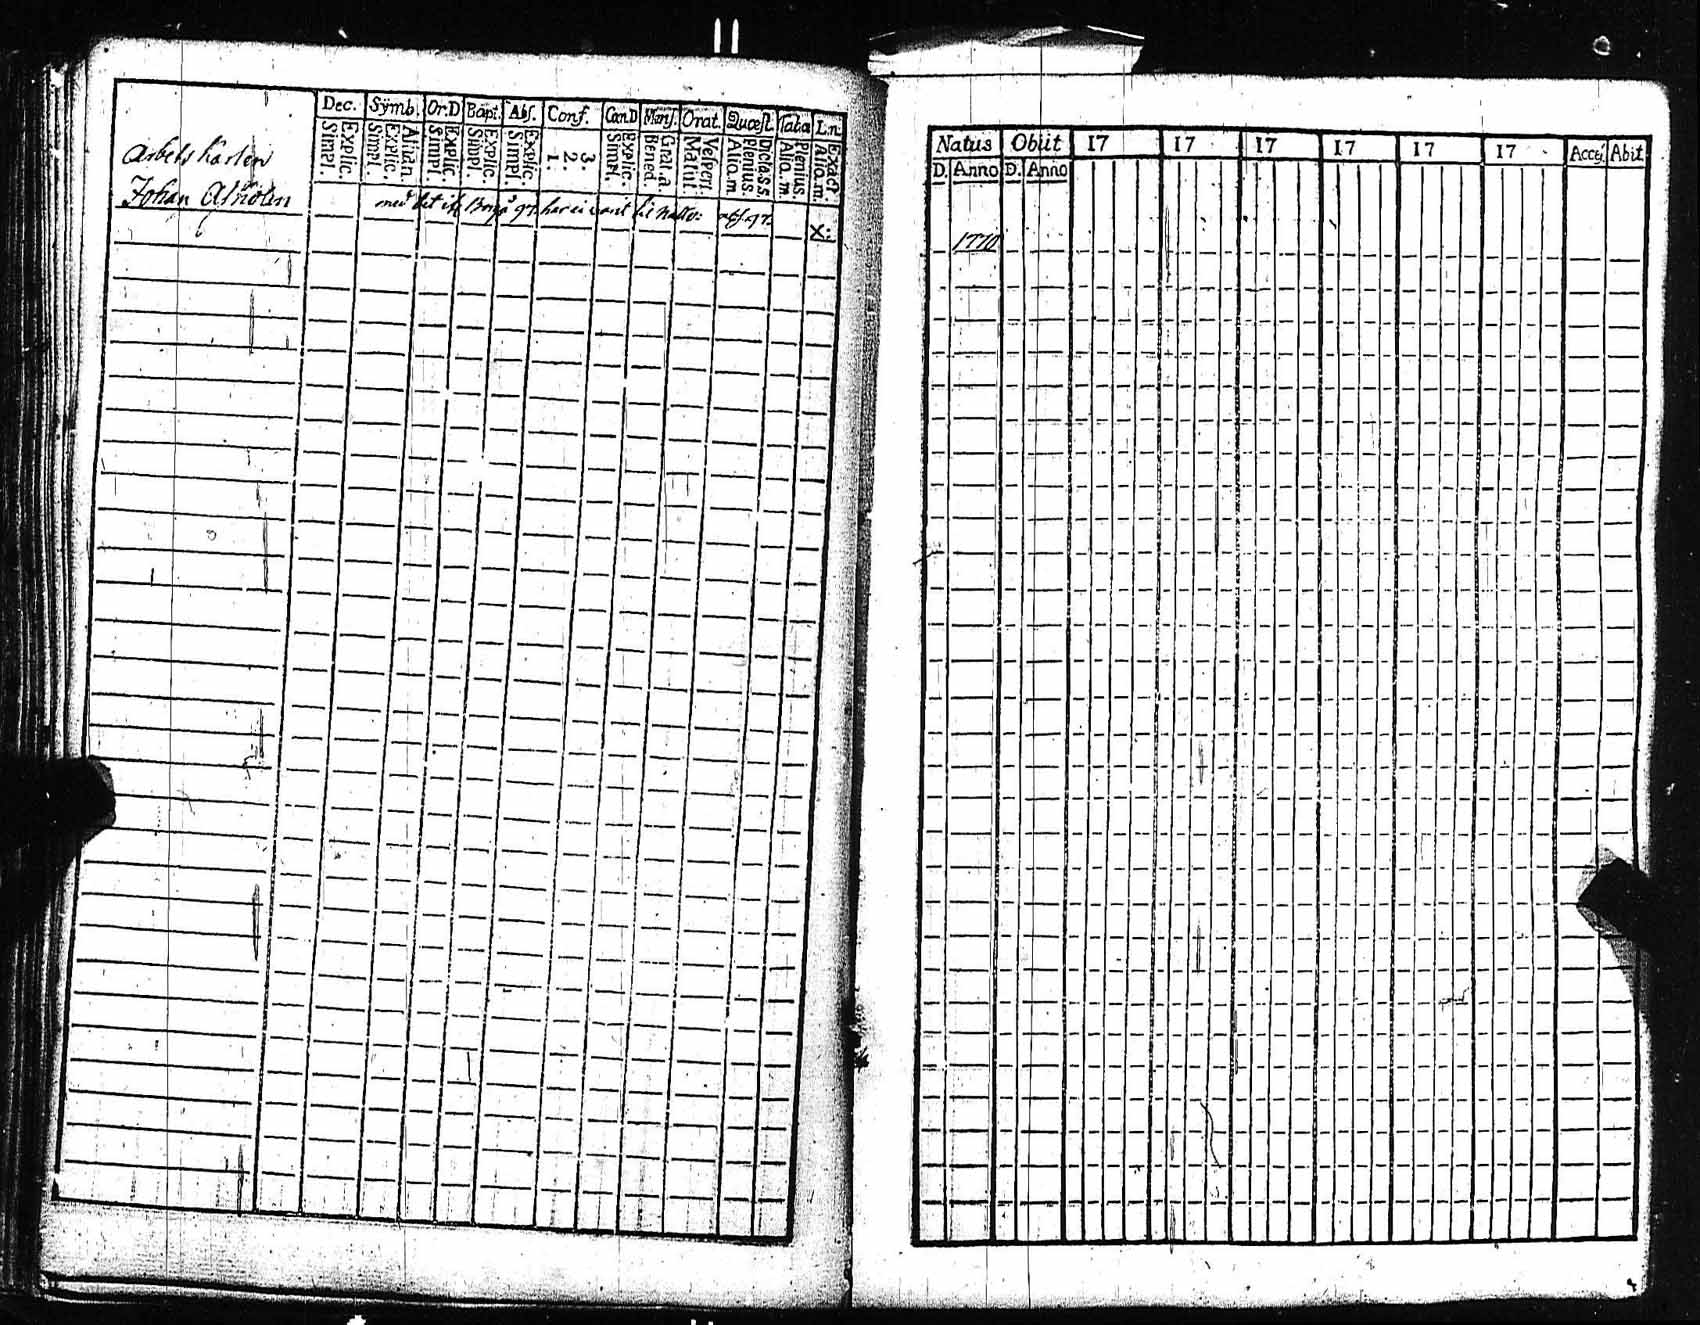 Dec. Symb. Or.D Bapt. Abs. Conf. Cœn.D Mens. Orat. Quæst. Tab.a L.n:
Simpl. Explic. Simpl. Explic. Athan. Simpl. Explic. Simpl. Explic. Simpl. Explic. 1. 2. 3. Simpl. Explic. Bened. Grat.a. Matut. Vesper. Alio.m. Plenius. Dictass. Alio.m. Plenius. Alio.m. Exact
Arbets karlen
Johan
med har ei til
X:
Natus Obiit 17 17 17 17 17 17 Acces. Abit
D. Anno D. Anno
1770